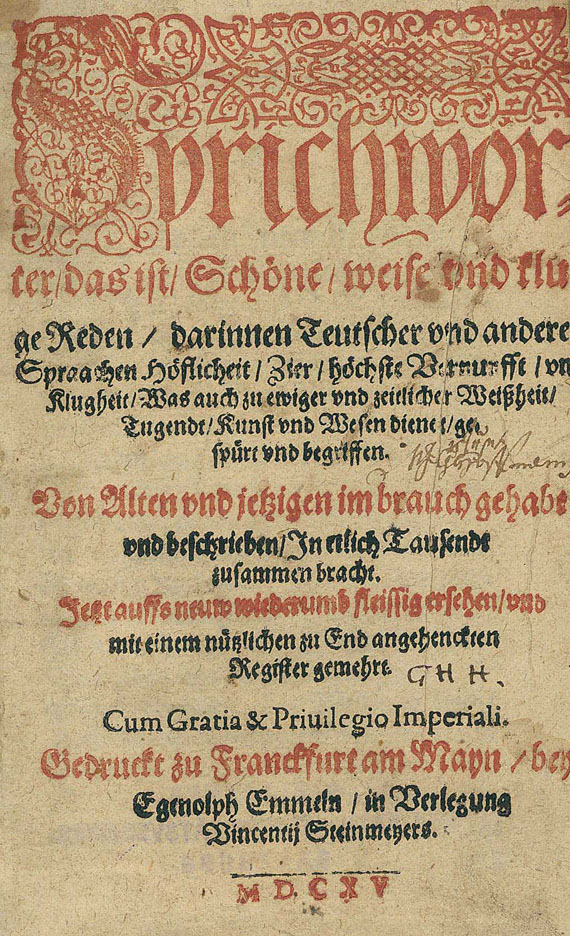 Sprichwör-
ter/ das ist/ Schöne/ weise vnd klu
ge Reden / darinnen Teutscher vnd andere
Spraachen Höflicheit / Zier / höchste Vernunfft / vn
Klugheit / Was auch zu ewiger vnd zeitlicher Weißheit/
Tugendt/ Kunst vnd Wesen dienet/ ge-
spürt vnd begriffen.
Von Alten vnd jetzigen im brauch gehabt
vnd beschrieben/ In etlich Tausendt
zusammen bracht.
Jetzt auffs neuw wiederumb fleissig ersehen/ vnd
mit einem nützlichen zu End angehenckten
Register gemehrt.
G H H.
Cum Gratia & Priuilegio Imperiali.
Gedruckt zu Franckfurt am Mayn / bey
Egenolph Emmeln / in Verlegung
Vincentij Steinmeyers.
M D C X V